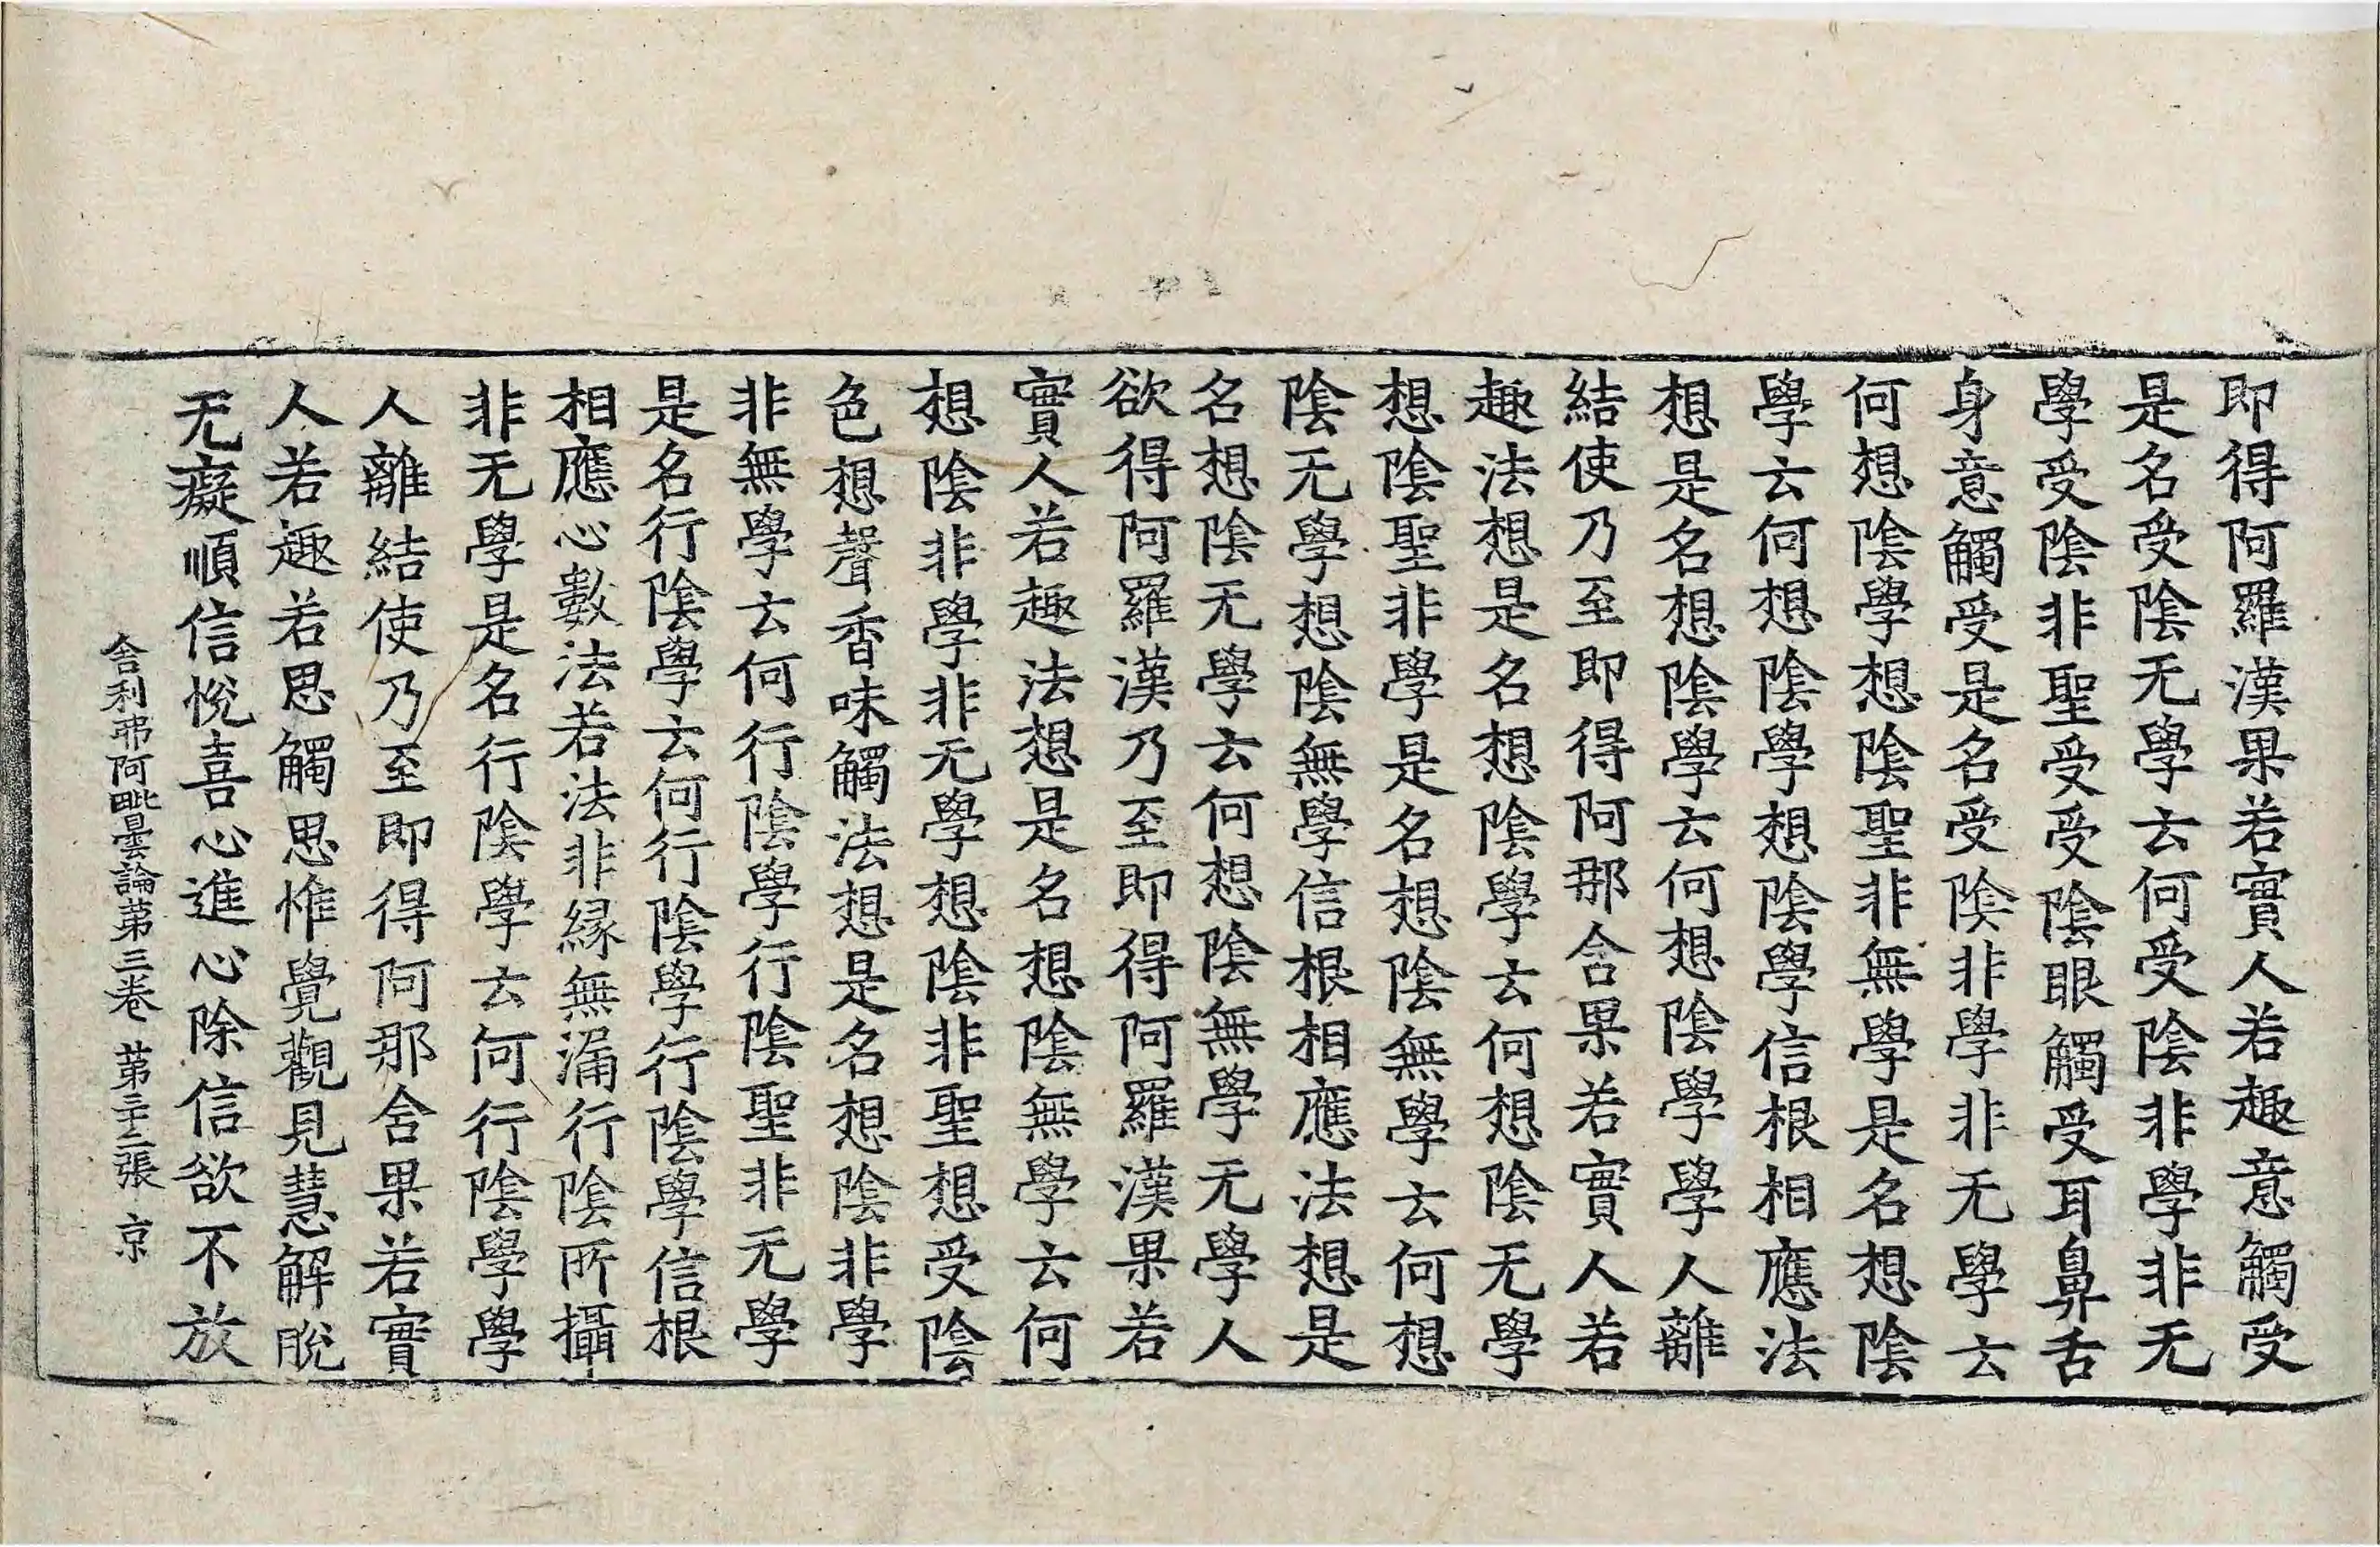 即得阿羅漢果若實人若趣意觸受
是名受陰无學云何受陰非學非无
學受陰非聖受受陰眼觸受耳鼻舌
身意觸受是名受陰非學非无學云
何想陰學想陰聖非無學是名想陰
學云何想陰學想陰學信根相應法
想是名想陰學云何想陰學學人離
結使乃至即得阿那含果若實人若
趣法想是名想陰學云何想陰无學
想陰聖非學是名想陰無學云何想
陰无學想陰無學信根相應法想是
名想陰无學云何想陰無學无學人
欲得阿羅漢乃至即得阿羅漢果若
實人若趣法想是名想陰無學云何
想陰非學非无學想陰非聖想受陰
色想聲香味觸法想是名想陰非學
非無學云何行陰學行陰聖非无學
是名行陰學云何行陰學行陰學信根
相應心數法若法非緣無漏行陰所攝
非无學是名行陰學云何行陰學學
人離結使乃至即得阿那含果若實
人若趣若思觸思惟覺觀見慧解脫
无癡順信悅喜心進心除信欲不放
舍利弗阿毗曇論第三卷 第三十二張 京